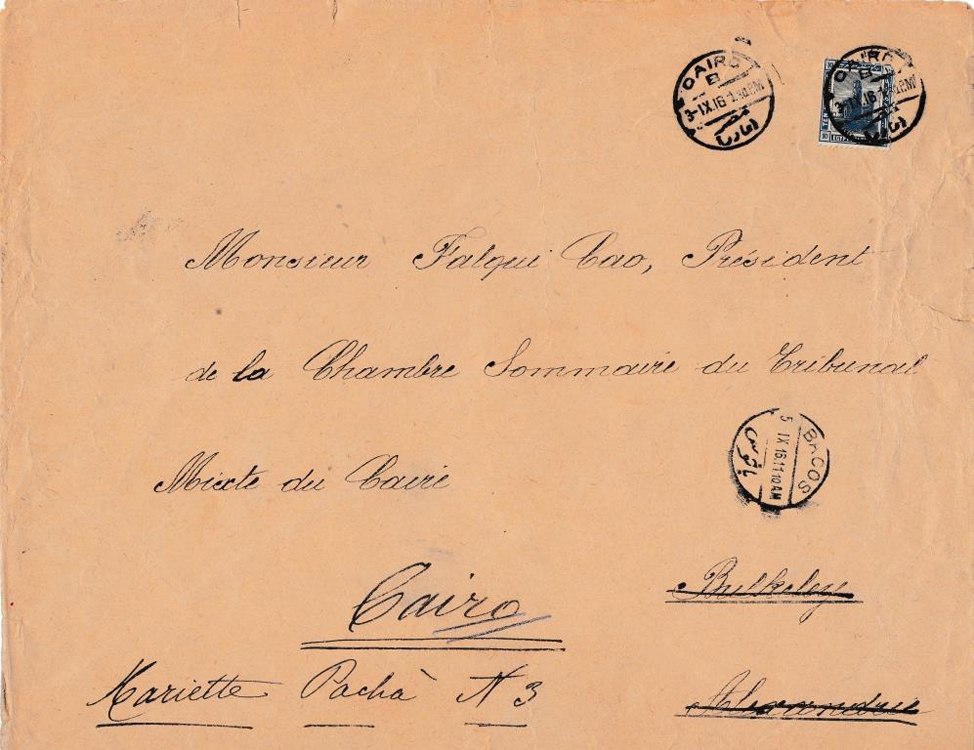 CAIRO
B
3-IX.16.1 30 PM
CAIRO
B
3-IX.16
PM
EGYPT
Monsieur Falqui Cao, Président
de la Chambre Sommaire du Tribunal
Mixte du Caire
BACOS
5 IX 16.11 10 AM
باكوس
Bulkeley
Cairo
Mariette Pacha N 3
Alexandrie